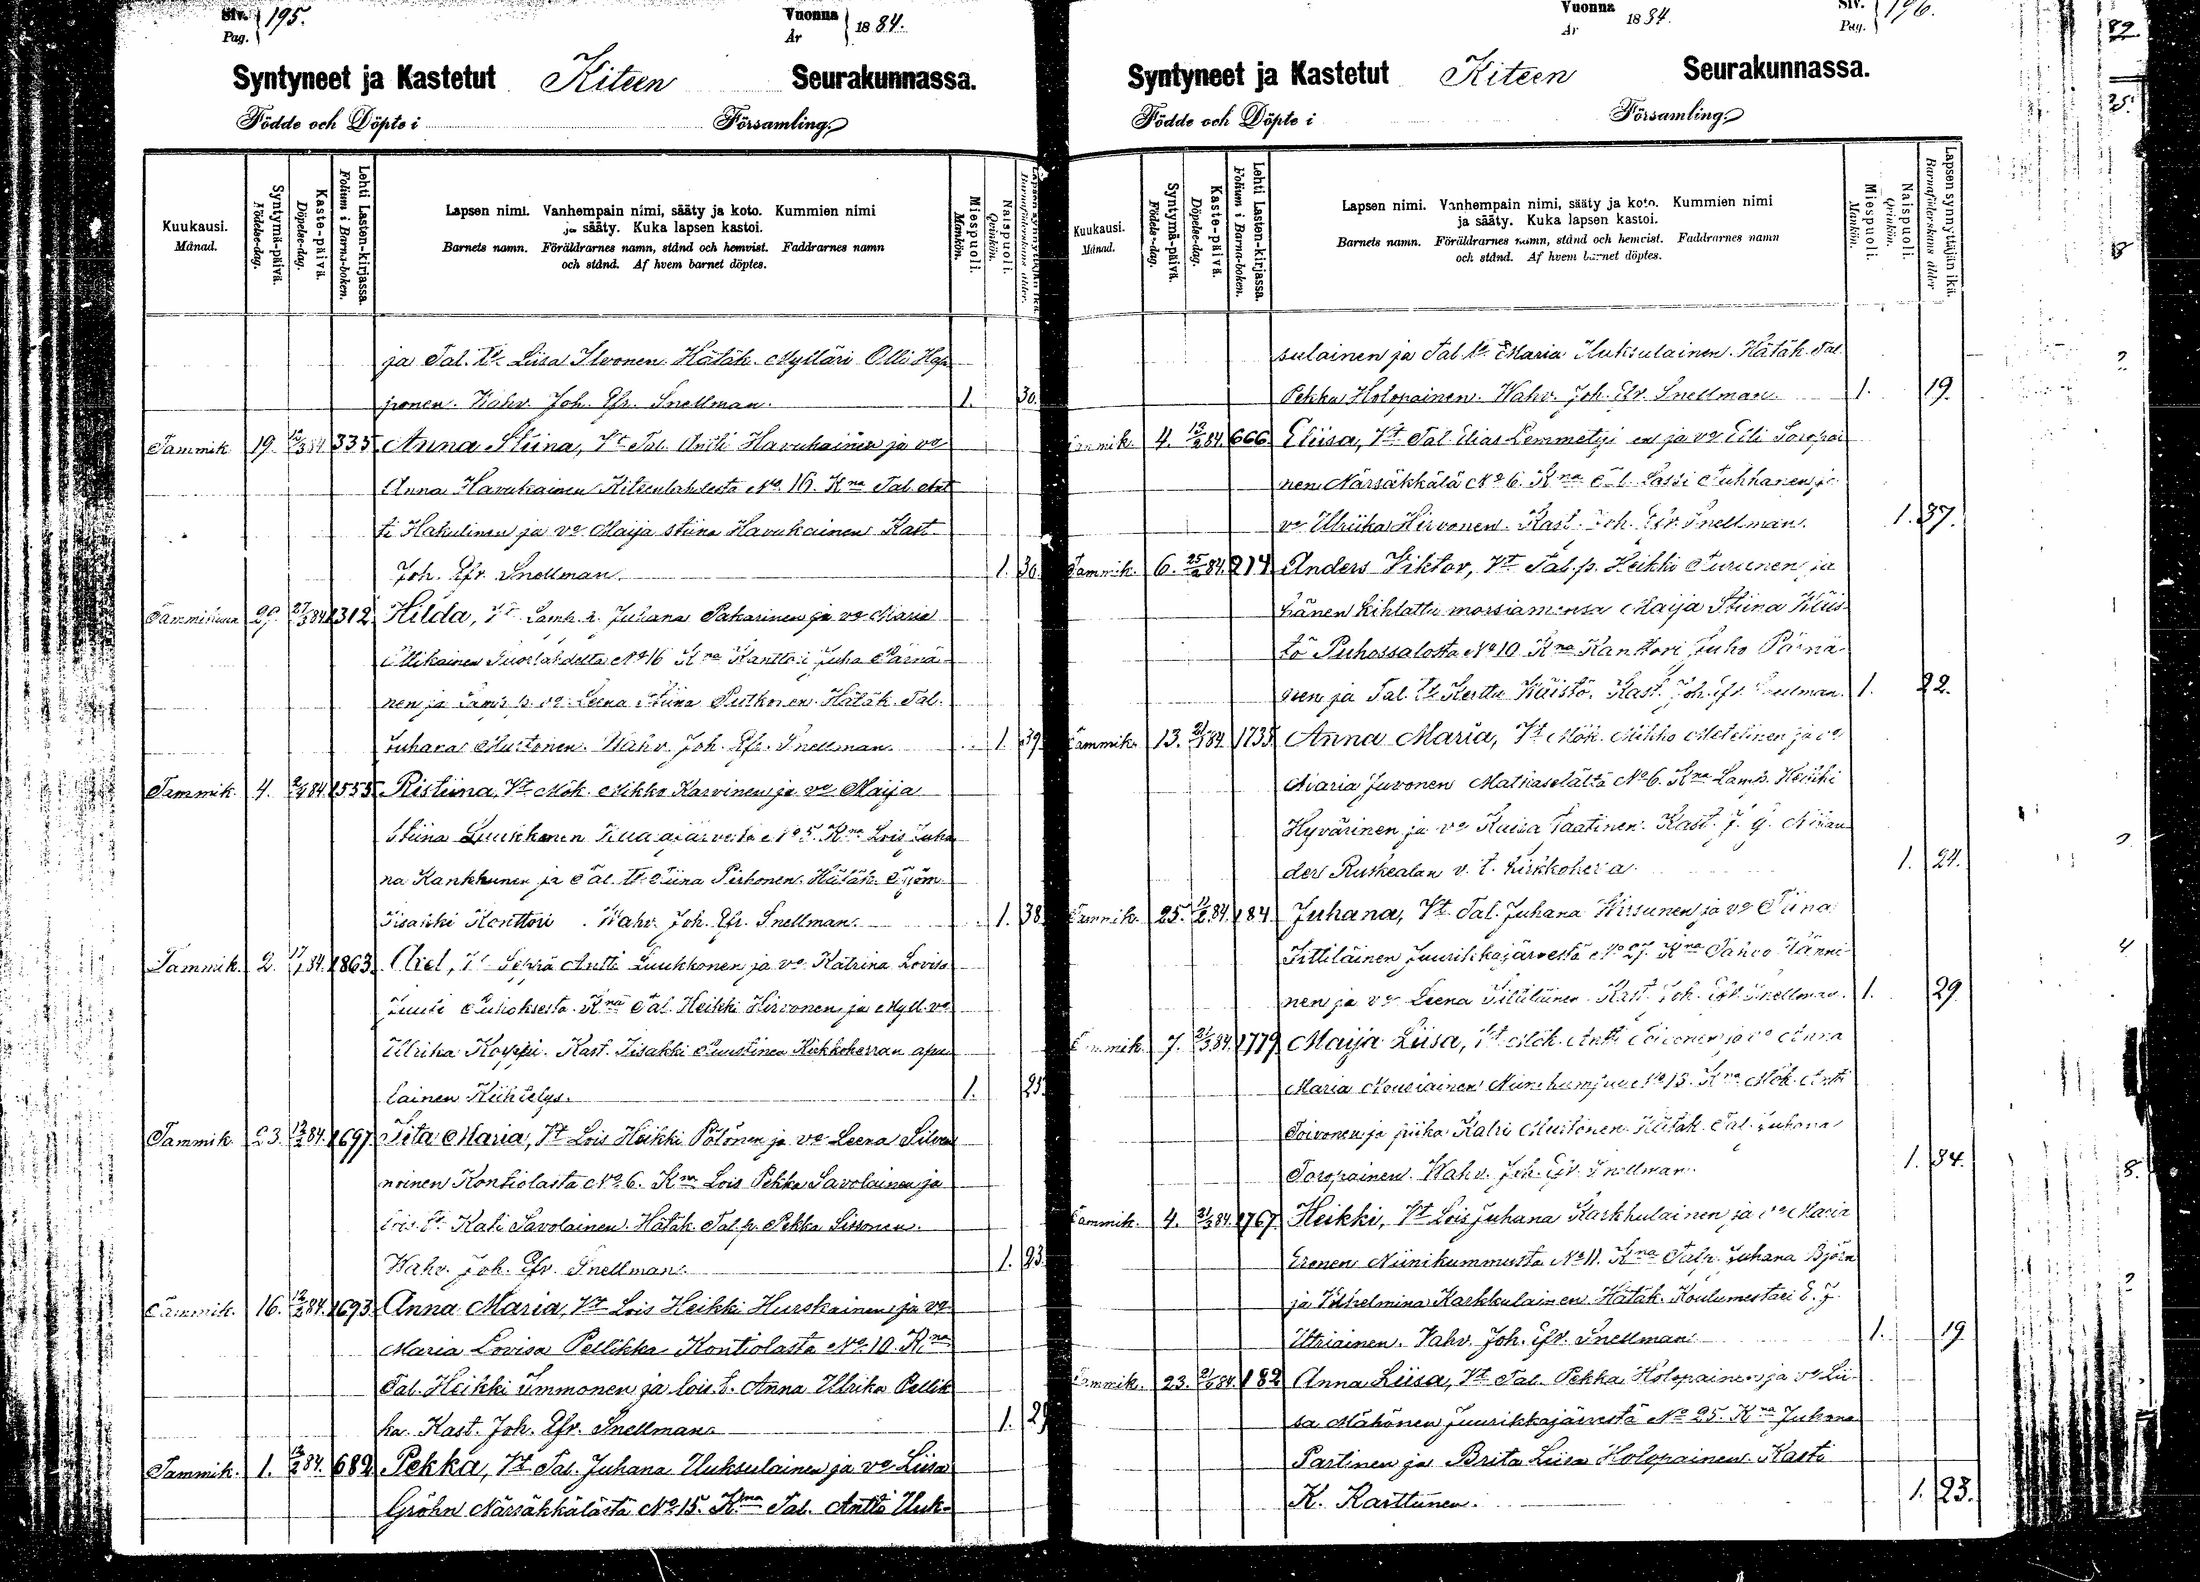 Siv. Pag. 195.
Vuonna År 1884.
Syntyneet ja Kastetut Kiteen Seurakunnassa.
Födde och Döpte i Församling.
Kuukausi. Månad.
Syntymä-päivä. Födelse-dag.
Kaste-päivä. Döpelse-dag.
Lehti Lasten-kirjassa. Folium i Barna-boken.
Lapsen nimi. Vanhempain nimi, sääty ja koto. Kummien nimi
ja sääty. Kuka lapsen kastoi.
Barnets namn. Föräldrarnes namn, stånd och hemvist. Faddrarnes namn
och stånd. Af hvem barnet döptes.
Miespuoli. Mankön.
Naispuoli. Qvinkön.
ja Tal. tr Liisa Ilvonen. Hätäk. Mylläri Olli Hap
ponen. Wahv. Joh. Efr. Snellman. 1. 30.
Tammik. 19. 335 Anna Stiina, Vt Tal. Antti Havukainen ja vo
Anna Havukainen Kiteenlahdesta No 16. Kna Tal. Ant
ti Hakulinen ja vo Maija Stiina Havukainen Kast.
Joh. Efr. Snellman. 1. 30.
Tammikuun 29. 27/3 84. 1312 Hilda, Vt Lamp. Juhana Pakarinen ja vo Maria
No 16 Kna Kanttori Juho Pärnä
nen ja Lamp. vo Leena Stiina Putkonen. Hätäk. Tal.
Juhana Mustonen. Wahv. Joh. Efr. Snellman. 1. 39.
Tammik. 4. 84. 1555 Ristiina, Vt Mök. Mikko Karvinen ja vo Maija
Stiina Luukkonen No 5. Kna Lois Juha
na Kankkunen ja Tal. tr Tiina Pirhonen. Hätäk. Työm.
Iisakki Konttori. Wahv. Joh. Efr. Snellman. 1. 38.
Tammik. 2. 84. 1863. Axel, Vt Seppä Antti Luukkonen ja vo Katrina Lovisa
Puhoksesta. Kna Tal. Heikki Hirvonen ja Myll. vo
Ulrika Koyppi. Kast. Iisakki Kirkkoherran apu
lainen Kiihtelys. 1. 25.
Tammik. 23. 12/2 84. 1697 Iita Maria, Vt Lois Heikki Pölönen ja vo Leena Silven
noinen Kontiolasta No 6. Kna Lois Pekka Savolainen ja
Kati Savolainen. Hätäk. Tal. p. Pekka Sissonen.
Wahv. Joh. Efr. Snellman. 1. 23.
Tammik. 16. 12/2 84. 1693 Anna Maria, Vt Lois Heikki Hurskainen ja vo
Maria Lovisa Pellikka Kontiolasta No 10. Kna
Tal. Heikki Immonen ja lois. t. Anna Ulrika Pellik
ka. Kast. Joh. Efr. Snellman. 1.
Tammik. 1. 12/2 84. 682 Pekka, Vt Tal. Juhana Uuksulainen ja vo Liisa
Gröhn Närsäkkälästä No 15. Kna Tal. Antti Uuk-
Vuonna År 1884.
Siv. Pag. 196.
Syntyneet ja Kastetut Kiteen Seurakunnassa.
Födde och Döpte i Församling.
Kuukausi. Månad.
Syntymä-päivä. Födelse-dag.
Kaste-päivä. Döpelse-dag.
Lehti Lasten-kirjassa. Folium i Barna-boken.
Lapsen nimi. Vanhempain nimi, sääty ja koto. Kummien nimi
ja sääty. Kuka lapsen kastoi.
Barnets namn. Föräldrarnes namn, stånd och hemvist. Faddrarnes namn
och stånd. Af hvem barnet döptes.
Miespuoli. Mankön.
Naispuoli. Qvinkön.
Lapsen synnyttäjän ikä. Barnaföderskans ålder
sulainen ja Tal. tr Maria Uuksulainen. Hätäk. Tal.
Pekka Holopainen. Wahv. Joh. Efr. Snellman. 1. 19.
Tammik. 4. 12/2 84. 666 Eliisa, Vt Tal. Elias Lemmetyinen ja vo Eili Soropai
nen Närsäkkälä No 6. Kna Tal. Lassi Tuhkanen ja
vo Ulriika Hirvonen. Kast. Joh. Efr. Snellman. 1. 37.
Tammik. 6. 25/2 84. 214 Anders Viktor, Vt Tal. p. Heikki Turunen ja
hänen kihlattu morsiamensa Maija Stiina Kiis-
tö Puhossalosta No 10 Kna Kanttori Juho Pärnä-
nen ja Tal. tr Kerttu Kiistö. Kast. Joh. Efr. Snellman. 1. 22.
Tammik. 13. 84. 1735 Anna Maria, Vt Mök. Mikko ja vo
Maria Juvonen Matkaselältä No 6. Kna Lamp. Heikki
Hyvärinen ja vo Kaisa Taatinen. Kast. J. G.
der Ruskealan v. t. kirkkoherra. 1. 24.
Tammik. 25. 84. 184 Juhana, Vt Tal. Juhana Hirsunen ja vo Tiina
Tittiläinen Juurikkajärvestä No 27. Kna Pahvo Känni-
nen ja vo Leena Kast. Joh. Efr. Snellman. 1. 29
Tammik. 7. 21/3 84. 1779 Maija Liisa, Vt Mök. Antti Toivonen ja vo Anna
Maria Kousiainen No 13. Kna Mök. Antti
Toivonen ja piika Katri Mustonen. Hätäk. Tal. Juhana
Soropainen. Wahv. Joh. Efr. Snellman. 1. 34.
Tammik. 4. 21/3 84. 1767 Heikki, Vt Lois Juhana Karkkulainen ja vo Maria
Eronen Niinikummusta No 11. Kna Tal. p. Juhana Björn
ja Vilhelmina Karkkulainen. Hätäk. Koulumestari E. J.
Utriainen. Vahv. Joh. Efr. Snellman. 1. 19
Tammik. 23. 84. 182 Anna Liisa, Vt Tal. Pekka Holopainen ja vo Lii-
sa Mähönen Juurikkajärvestä No 25. Kna Juhana
Partinen ja Brita Liisa Holopainen. Kasti
K. Karttunen. 1. 23.